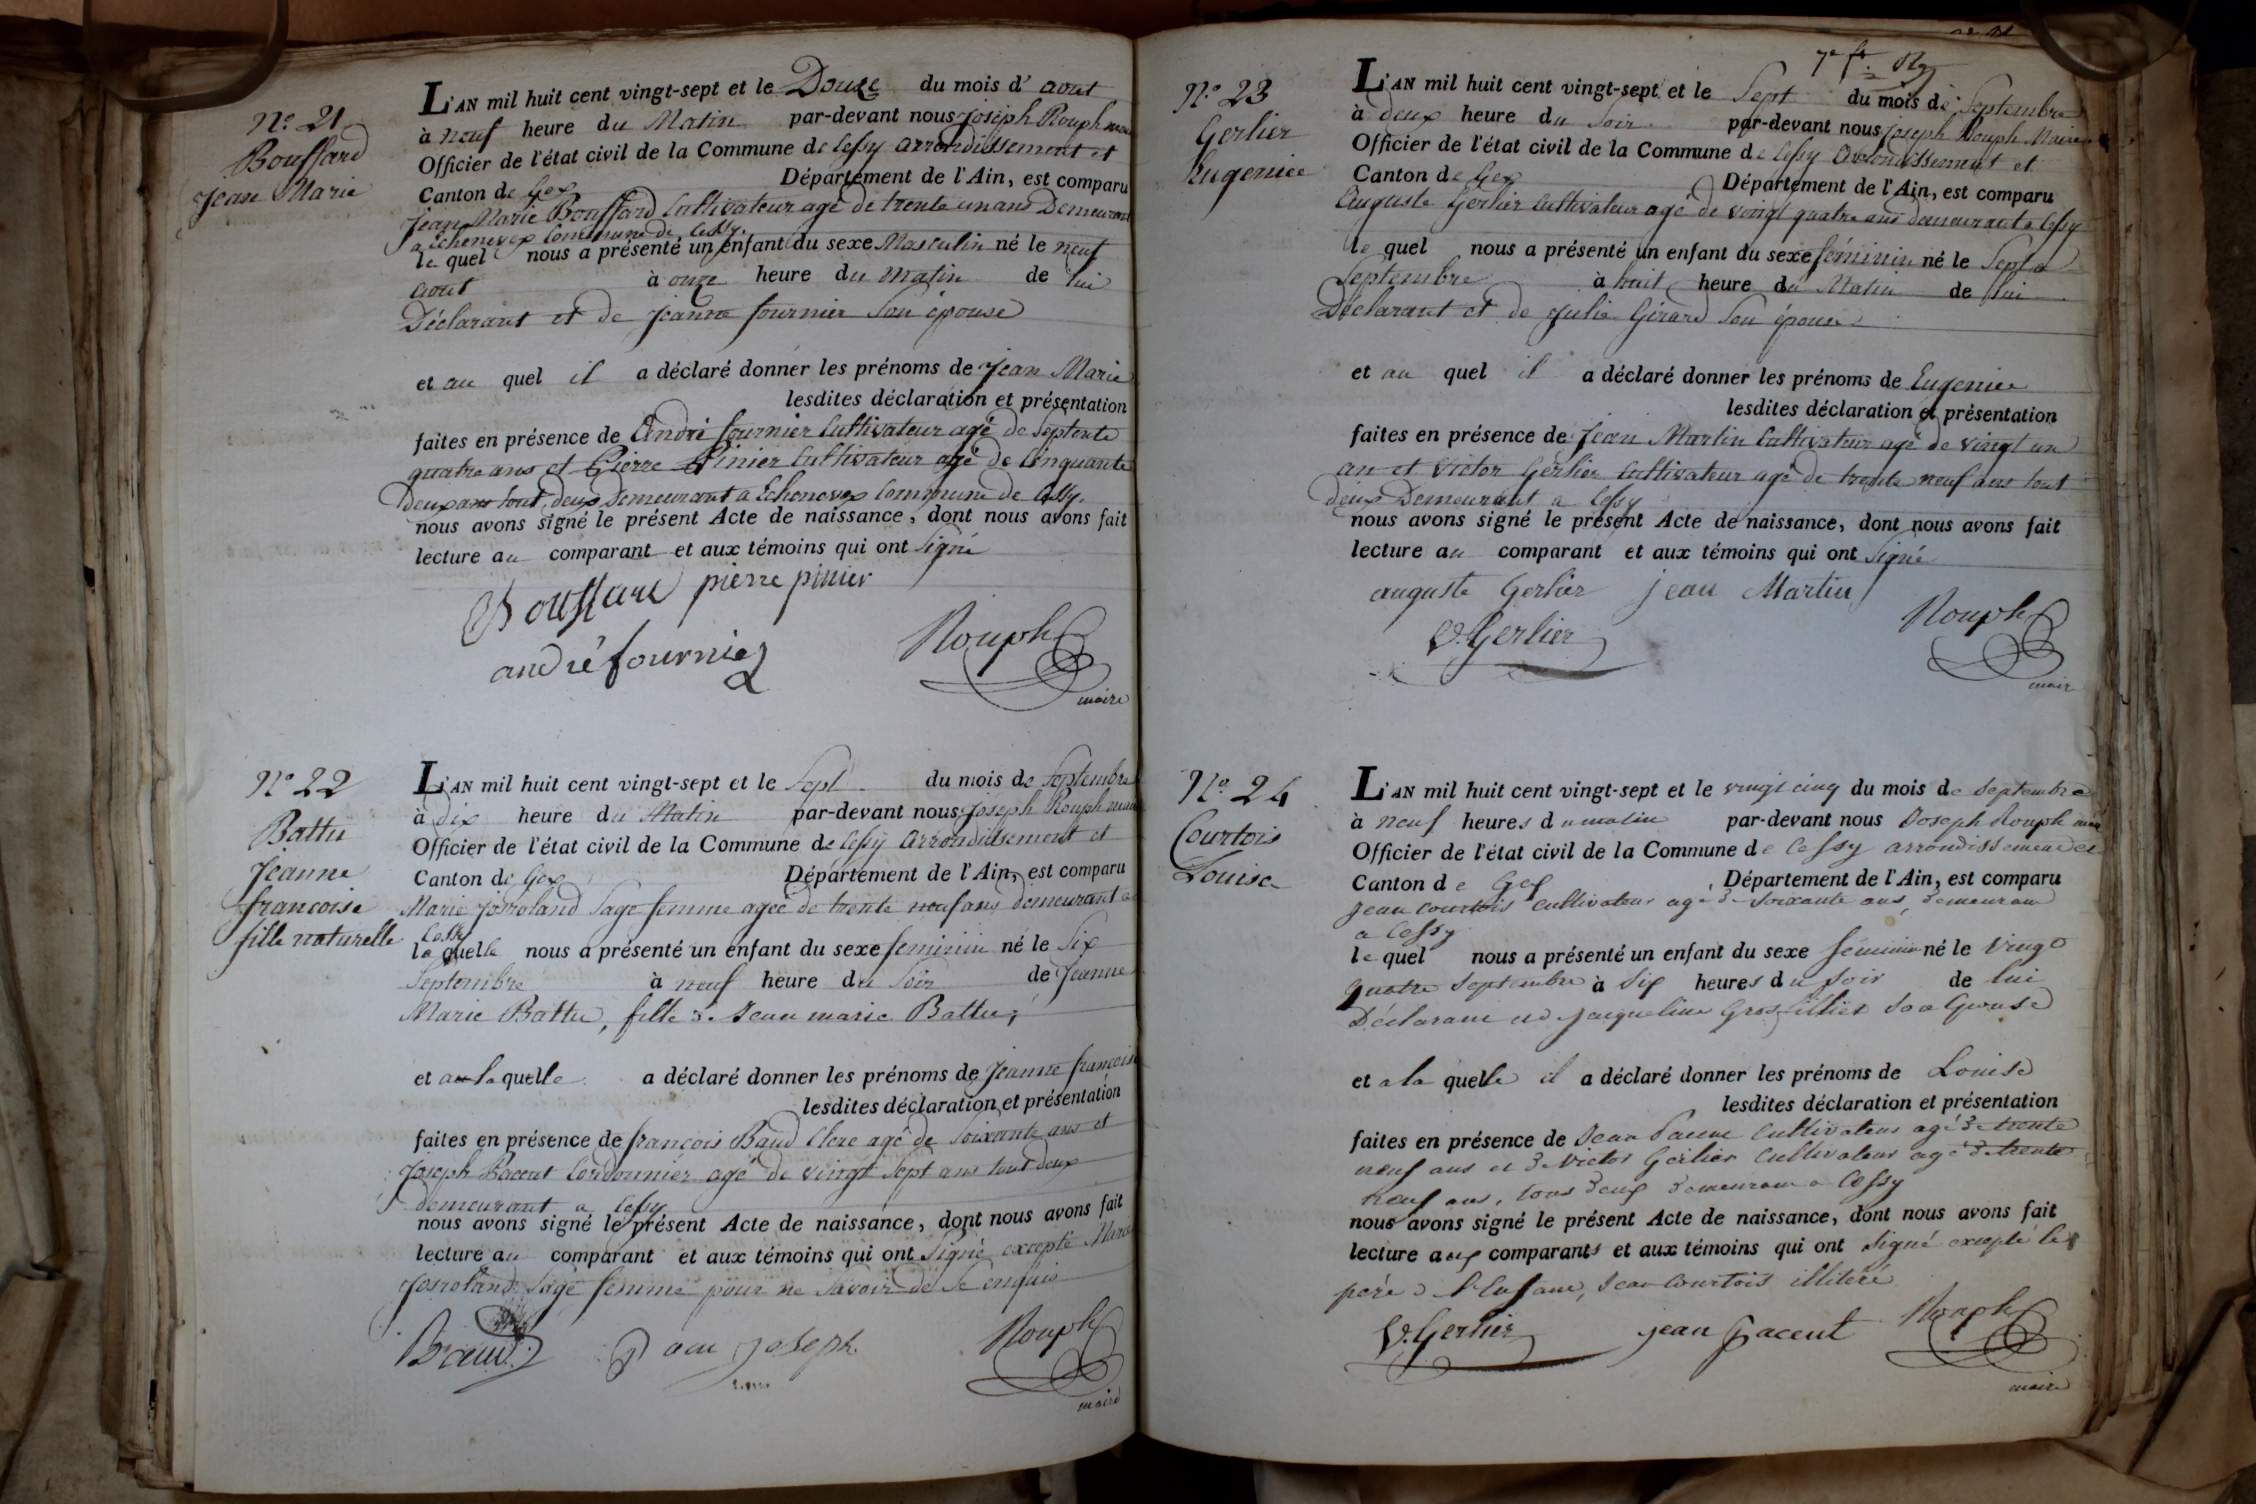 N.º 21
Bouffard
Jean Marie
L'AN mil huit cent vingt-sept et le Douze du mois d' aout
à neuf heure du Matin par-devant nous Joseph Rouph maire
Officier de l'état civil de la Commune de Cessy arrondissement et
Canton de Gex Département de l'Ain, est comparu
Jean Marie Bouffard Cultivateur agé de trente un ans Demeurant
a Echenevex Commune de Cessy.
le quel nous a présenté un enfant du sexe Masculin né le neuf
aout à onze heure du matin de lui
Déclarant et de Jeanne fournier Son épouse
et au quel il a déclaré donner les prénoms de Jean Marie
lesdites déclaration et présentation
faites en présence de André fournier Cultivateur agé de Septente
quatre ans et Pierre Pinier Cultivateur agé de Cinquante
Deux ans tout deux Demeurant a Echenevex Commune de Cessy.
nous avons signé le présent Acte de naissance, dont nous avons fait
lecture au comparant et aux témoins qui ont Signé
Bouffard pierre pinier
andré fournier Rouph
maire
N.º 22
Battu
Jeanne
francoise
fille naturelle
L'AN mil huit cent vingt-sept et le Sept du mois de Septembre
à dix heure du Matin par-devant nous Joseph Rouph maire
Officier de l'état civil de la Commune de Cessy arrondissement et
Canton de Gex Département de l'Ain, est comparu
Marie Josroland Sage femme agée de trente neuf ans demeurant a
Cessy
la quelle nous a présenté un enfant du sexe feminin né le Six
Septembre à neuf heure du Soir de Jeanne
Marie Battu, fille de Jean marie Battu;
et a la quelle a déclaré donner les prénoms de Jeanne francoise
lesdites déclaration et présentation
faites en présence de françois Baud Clerc agé de Soixante ans et
Joseph Paccut Cordonnier agé de vingt Sept ans tout deux
demeurant a Cessy
nous avons signé le présent Acte de naissance, dont nous avons fait
lecture au comparant et aux témoins qui ont Signé excepté Marie
Josroland Sage femme pour ne Savoir de Ce enquis
Baud Joseph Rouph
maire
7e ft. Rg
N.º 23
Gerlier
Eugenie
L'AN mil huit cent vingt-sept et le Sept du mois de Septembre
à deux heure du Soir par-devant nous Joseph Rouph Maire
Officier de l'état civil de la Commune de Cessy Arrondissement et
Canton de Gex Département de l'Ain, est comparu
Auguste Gerlier Cultivateur agé de vingt quatre ans demeurant a Cessy
le quel nous a présenté un enfant du sexe féminin né le Sept
Septembre à huit heure du Matin de lui
Déclarant et de Julie Girard Son épouse
et au quel il a déclaré donner les prénoms de Eugenie
lesdites déclaration et présentation
faites en présence de Jean Martin Cultivateur agé de vingt un
an et Victor Gerlier Cultivateur agé de trente neuf ans tout
deux Demeurant a Cessy
nous avons signé le présent Acte de naissance, dont nous avons fait
lecture au comparant et aux témoins qui ont Signé
auguste Gerlier jean Martin
V. Gerlier Rouph
maire
N.º 24
Courtois
Louise
L'AN mil huit cent vingt-sept et le vingt cinq du mois de Septembre
à neuf heures du matin par-devant nous Joseph Rouph maire
Officier de l'état civil de la Commune de Cessy arrondissement et
Canton de Gex Département de l'Ain, est comparu
Jean Courtois cultivateur agé de Soixante ans, demeurant
a Cessy
le quel nous a présenté un enfant du sexe féminin né le Vingt
quatre Septembre à Six heures du Soir de lui
Déclarant et de Jacqueline Grosfillier Son épouse
et a la quelle il a déclaré donner les prénoms de Louise
lesdites déclaration et présentation
faites en présence de Jean Pacccut cultivateur agé de trente
neuf ans et de Victor Gerlier Cultivateur agé de trente
neuf ans, tous deux demeurant a Cessy
nous avons signé le présent Acte de naissance, dont nous avons fait
lecture aux comparants et aux témoins qui ont Signé excepté le
pere de l'Enfant, Jean Courtois illitéré
V. Gerlier jean paccut Rouph
maire